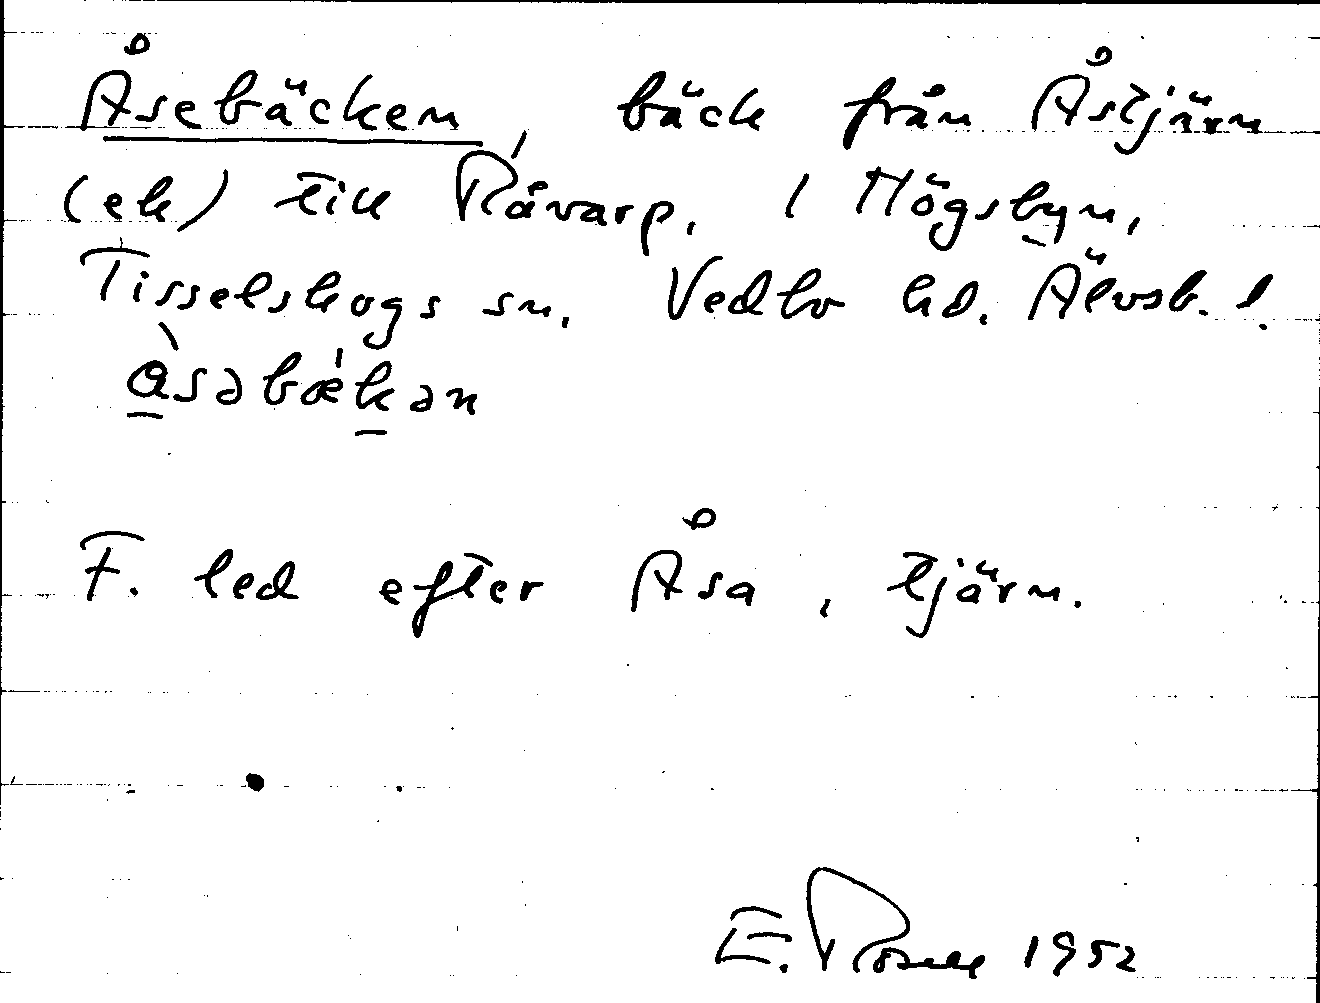 Åsebäcken, bäck från Åstjärn
(ek) till Råvarp, i Högsbyn,
Tisselskogs sn, Vedbo hd. Älvsb. l.
åsəbækən
F. led efter Åsa, tjärn.
E. Rosell 1952